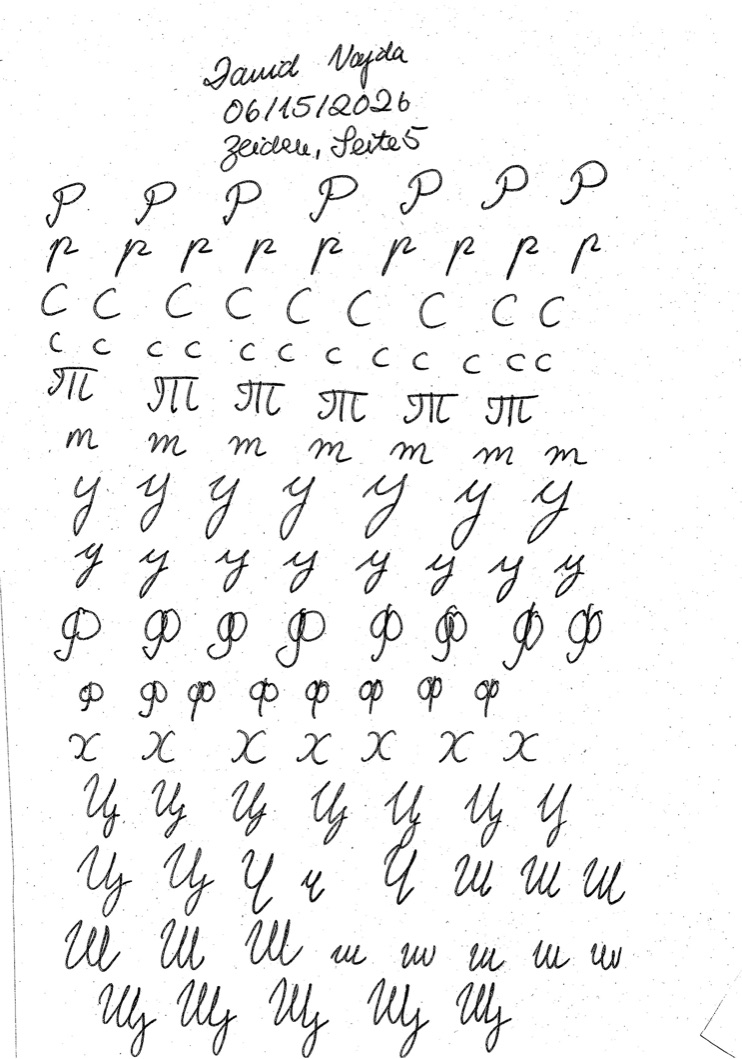 David Vajda
06/15/2026
Zeichen, Seite 5
Р Р Р Р Р Р Р
р р р р р р р р р
С С С С С С С С С
с с с с с с с с с с с с
Т Т Т Т Т Т
т т т т т т т
У У У У У У У
у у у у у у у у
Ф Ф Ф Ф Ф Ф Ф Ф
ф ф ф ф ф ф ф ф
х х х х х х х
Ц Ц Ц Ц Ц Ц Ц
Ц Ц Ч ч Ч Ш Ш Ш
Ш Ш Ш ш ш ш ш ш
Щ Щ Щ Щ Щ